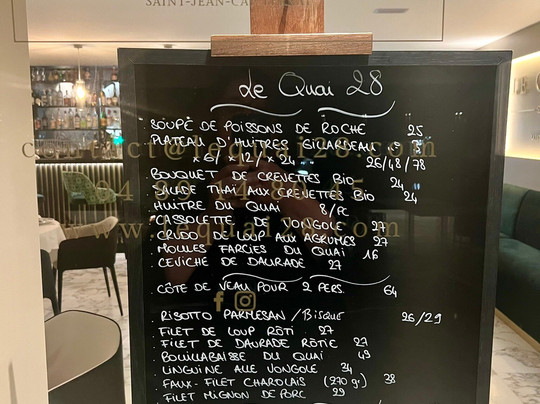 SAINT-JEAN-CAP
Le Quai 28
SOUPE DE POISSONS DE ROCHE 25
PLATEAU D'HUITRES GILLARDEAU
x 6 / x 12 / x 24 26/48/78
BOUQUET DE CREVETTES BIO 24
SALADE THAÏ AUX CREVETTES BIO 24
HUITRE DU QUAI 8/PC
CASSOLETTE DE VONGOLE 27
CRUDO DE LOUP AUX AGRUMES 27
MOULES FARCIES DU QUAI 16
CEVICHE DE DAURADE 27
CÔTE DE VEAU POUR 2 PERS. 64
RISOTTO PARMESAN / Bisque 26/29
FILET DE LOUP RÔTI 27
FILET DE DAURADE RÔTIE 27
BOUILLABAISSE DU QUAI 49
LINGUINE ALLE VONGOLE 34
FAUX-FILET CHAROLAIS (270 gr) 38
FILET MIGNON DE PORC 29
contact@lequai28.com
www.lequai28.com